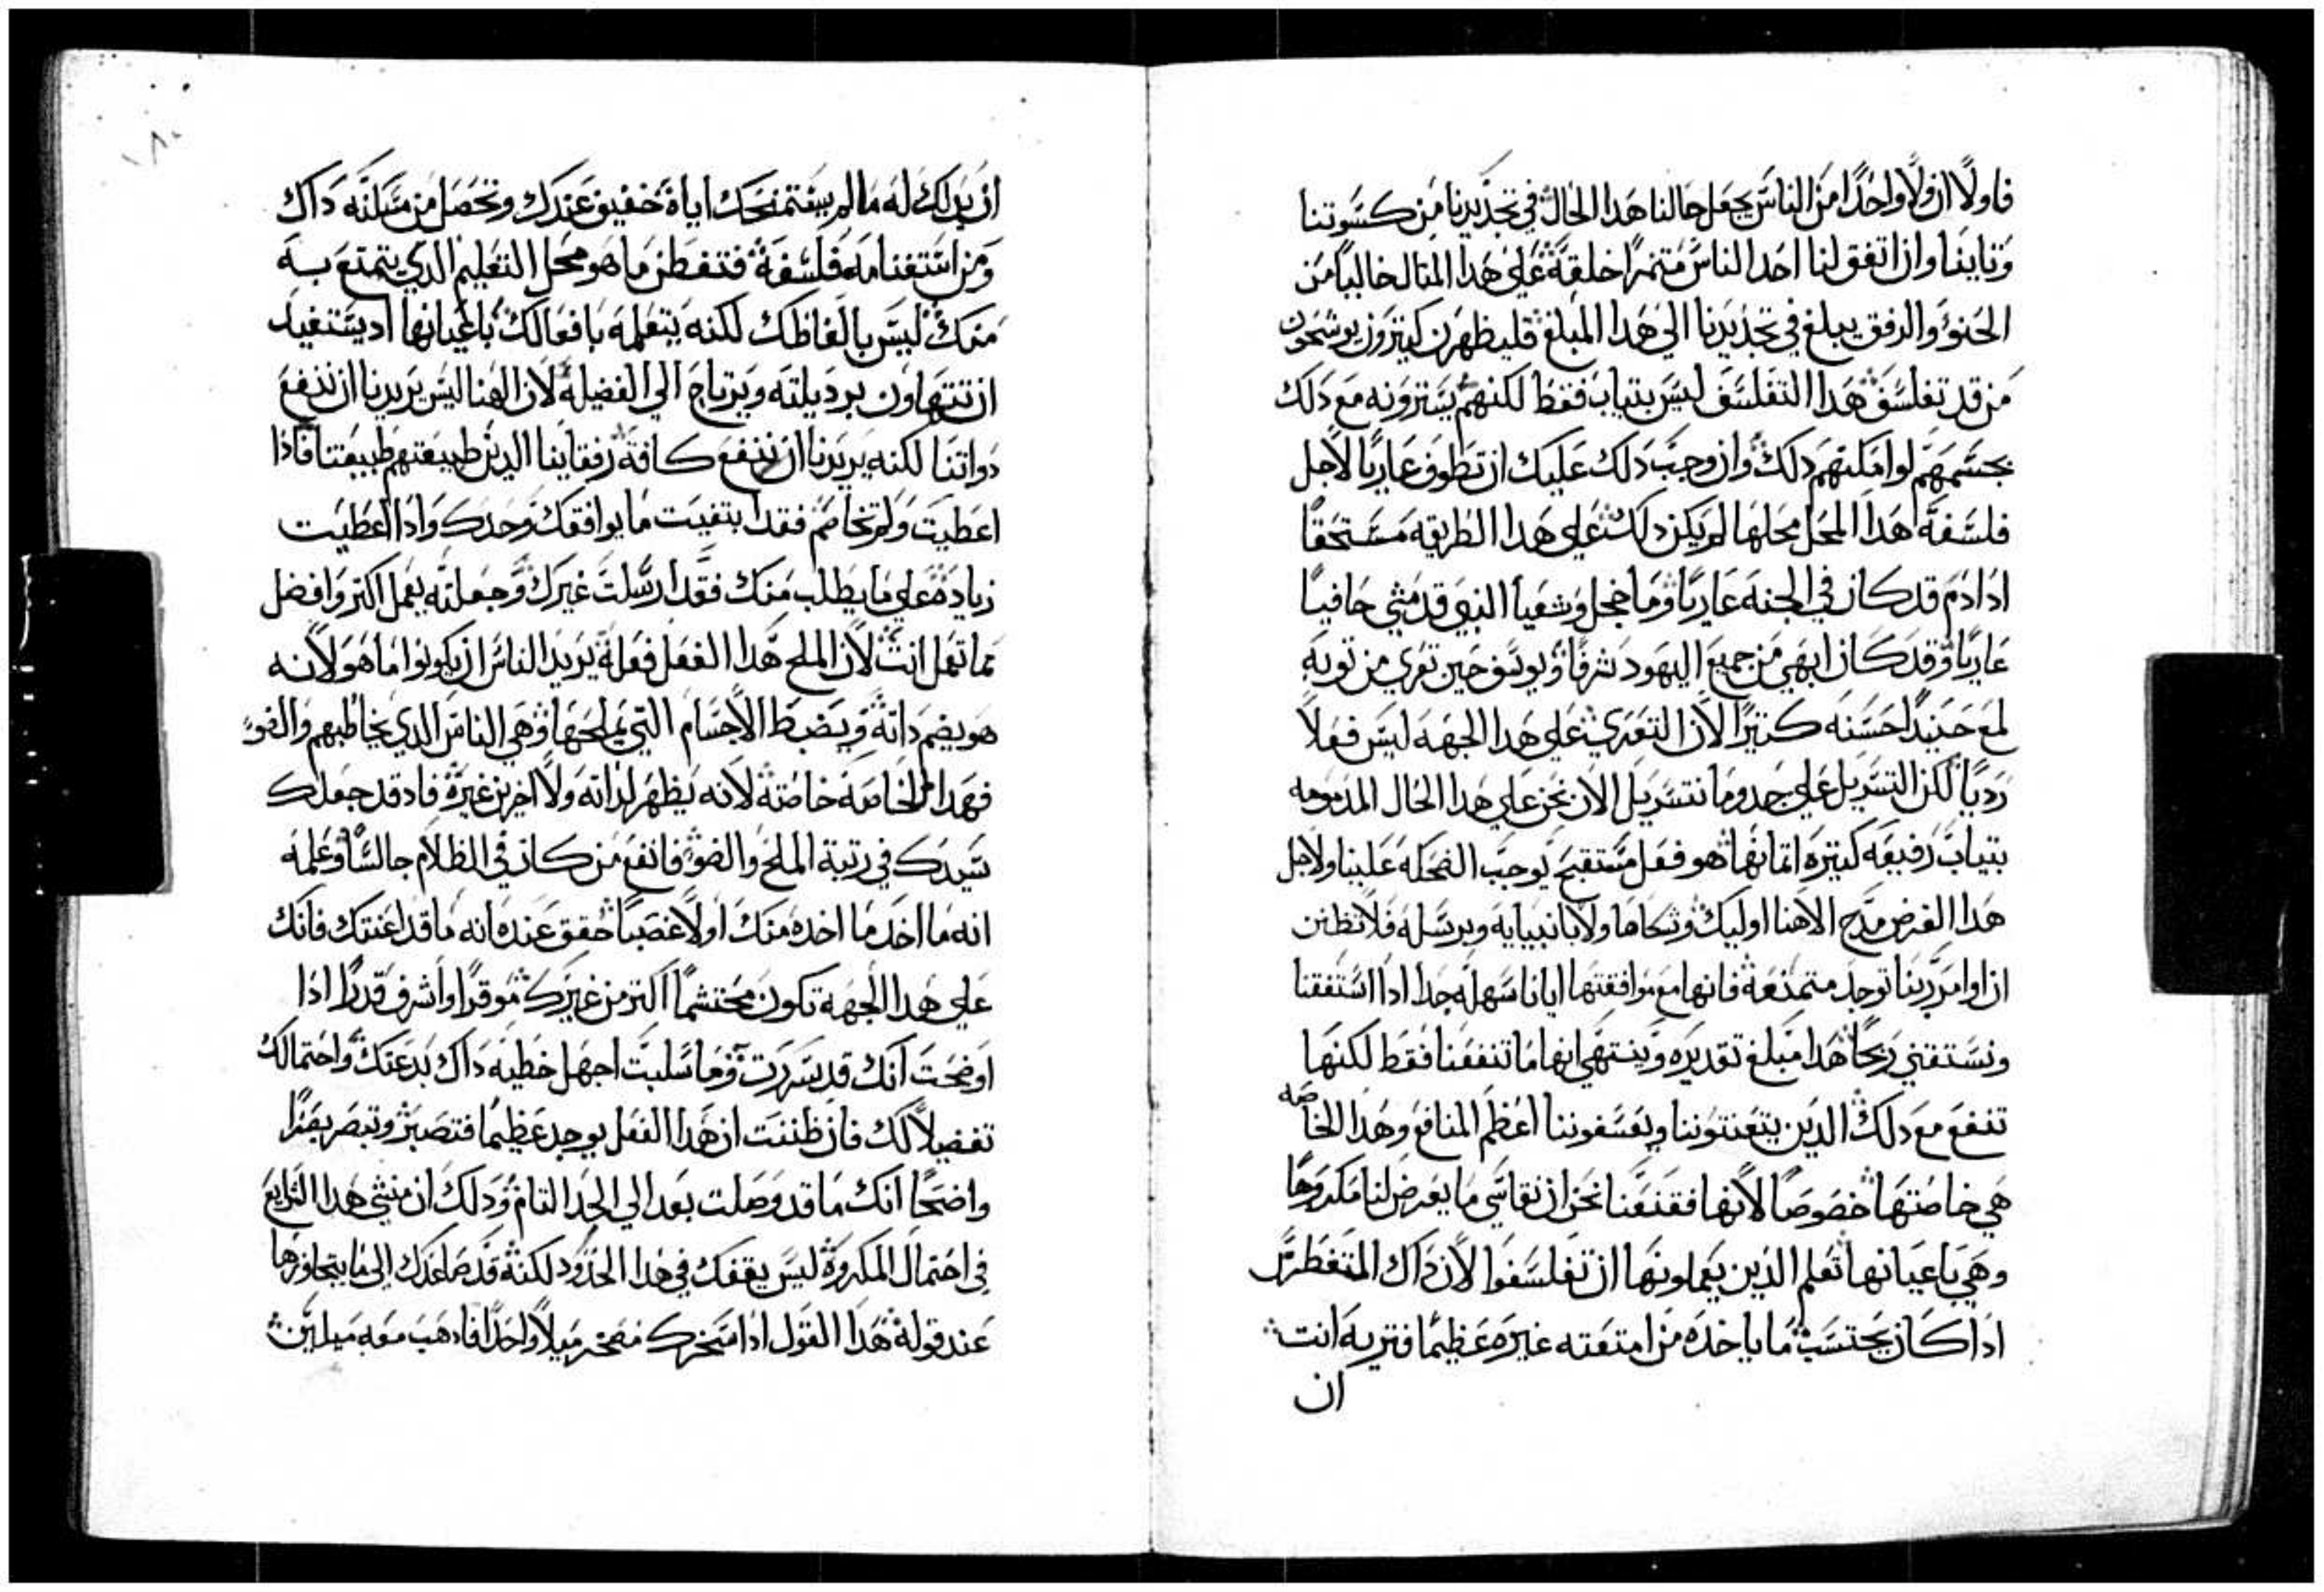 فاولًا ان ولا واحدًا من الناس يجعل حالنا هذا الحال في تجديدنا من كسوتنا
وثانيًا وان اتفق لنا احد الناس متنمرًا خلقة علي هذا المثال خاليًا من
الحنو والرفق يبلغ في تجديدنا الي هذا المبلغ فليظهرن كثيرون يوشحون
من قد تفلسف هذا التفلسف ليس بتياب فقط لكنهم يسترونه مع دلك
بجسمهم لو امكنهم دلك وان وجب دلك عليك ان تطوف عاريًا لاجل
فلسفة هذا المحل محلها لم يكن دلك علي هذا الطريقه مستحقًا
اذ ادم قد كان في الجنه عاريًا وما خجل وشعيا النبي قد مشي حافيًا
عاريًا وقد كان ابهي من جميع اليهود شرفًا ويوسف حين تعري من توبه
لمع حينيدًا حسنه كثيرًا لان التعري علي هذا الجهه ليس فعلًا
رديًا لكن التسربل علي حدو ما نتسربل الان نحن علي هذا الحال المدمومه
بتياب رفيعه كتيره اتمانها هو فعل مستقبح يوجب الضحكه علينا ولاجل
هذا الغرض مدح الاهنا اوليك وتكاها ولا بانبيايه وبرسله فلا تظنن
ان اوامر ربنا توجد متمنعة فانها مع موافقتها ايانا سهله جدا ادا استفقنا
ونستقني ربحًا هدا مبلغ تقديره وينتهي انها ما تنفعنا فقط لكنها
تنفع مع دلك الدين يتعنتوننا ويعسفوننا اعظم المنافع وهذا الخاصه
هي خاصتها خصوصًا لانها فقنعنا نحن ان نقاسي ما يعرض لنا مكروهًا
وهي باعيانها تعلم الدين يعملونها ان تفلسفوا لان داك المتغطرس
ادا كان يحتسب ما ياخده من امتعته غيره عظيمًا فتريه انت
ان
ان يدلك له ما لم يبتغمنحك اياه خفيق عندك وتحصل من مسكنه داك
ومن استغنامه فلسفة فتفطن ما هو محل التعليم الدي يتمتع به
منك ليس بالفاظك لكنه يتعلمه بافعالك باعيانها اد يستفيد
ان تتهاون برديلته ويرتاح الي الفضيلة لان الهنا ليس يريدنا ان ننفع
دواتنا لكنه يريدنا ان ننفع كافة رفقاينا الدين طبيعتهم طبيعتنا فادا
اعطيت ولم تخاصم فقد ابتغيت ما يوافقك وحدك وادا اعطيت
زياده علي ما يطلب منك فقد ارسلت غيرك وجعلته يعمل اكتر وافضل
مما تعمل انت لان الملح هذا الفعل فعله يريد الناس ان يكونوا ما هو لانه
هو يضم داته ويضبط الاجسام التي يملحها وهي الناس الدي يخاطبهم والضو
فهدا الخاصه خاصته لانه يظهر لداته ولاخرين غيره فاد قد جعلك
سيدك في رتبة الملح والضو فانفع من كان في الظلام جالسًا وعلمه
انه ما اخد ما اخده منك اولا غصبًا حقق عنده انه ما قد اعنتك فانك
علي هذا الجهه تكون محتشمًا اكتر من غيرك موقرًا واشرف قدرًا ادا
اوضحت انك قد سررت وما سلبت اجهل خطيه داك بدعتك واحتمالك
تفضيلًا لك فان ظننت ان هذا الفعل يوجد عظيمًا فتصبر وتبصر بصرًا
واضحًا انك ما قد وصلت بعد الي الحد التام ودلك ان منشي هذا الشرايع
في احتمال المكروه ليس يقفك في هذا الحدود لكنه قد صاعدك الي ما يتجاوزها
عند قوله هذا القول ادا سخرك مسخر ميلًا واحدًا فادهب معه ميلين